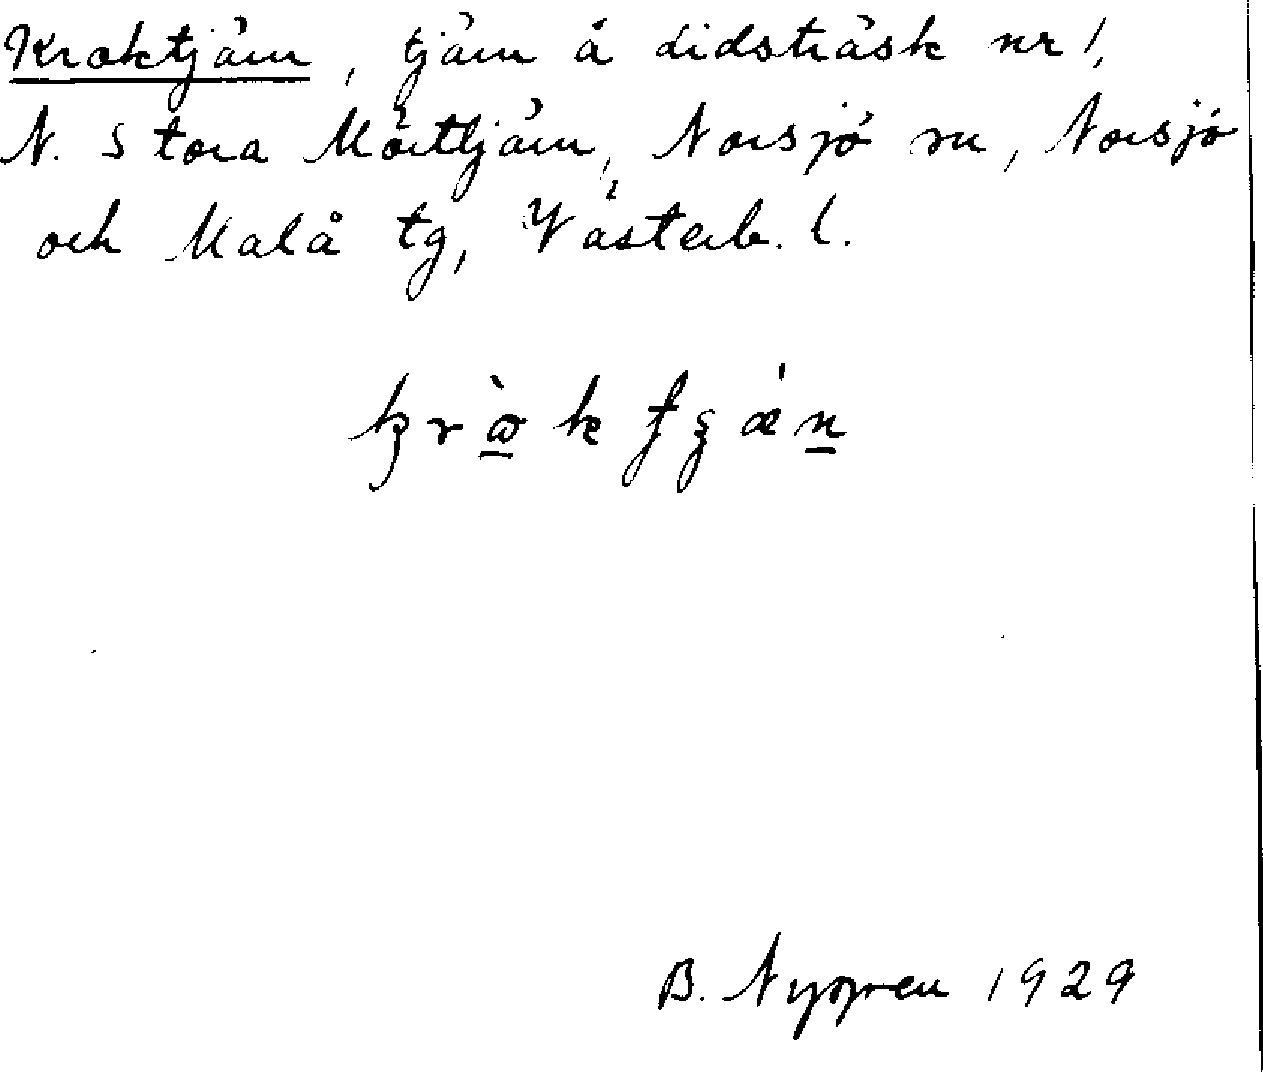 Kroktjärn, tjärn å Lidsträsk nr 1,
N. Stora Mörttjärn, Norsjö sn, Norsjö
och Malå tg, Västerb. l.
B. Nygren 1929